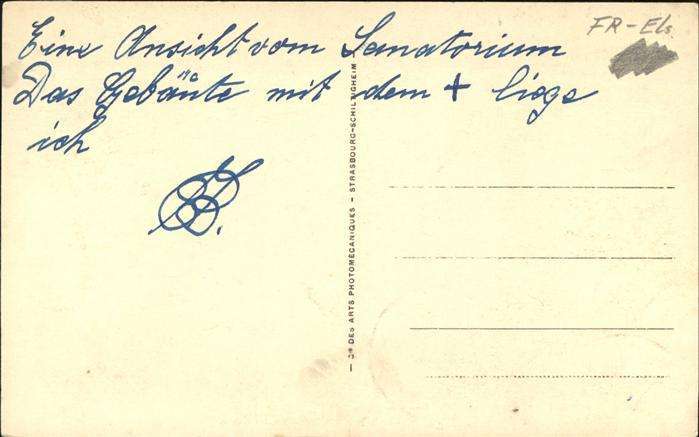 Eine Ansicht vom Sanatorium
Das Gebäute mit dem + liege
ich
FR-Els
— Cie DES ARTS PHOTOMÉCANIQUES - STRASBOURG-SCHILTIGHEIM —